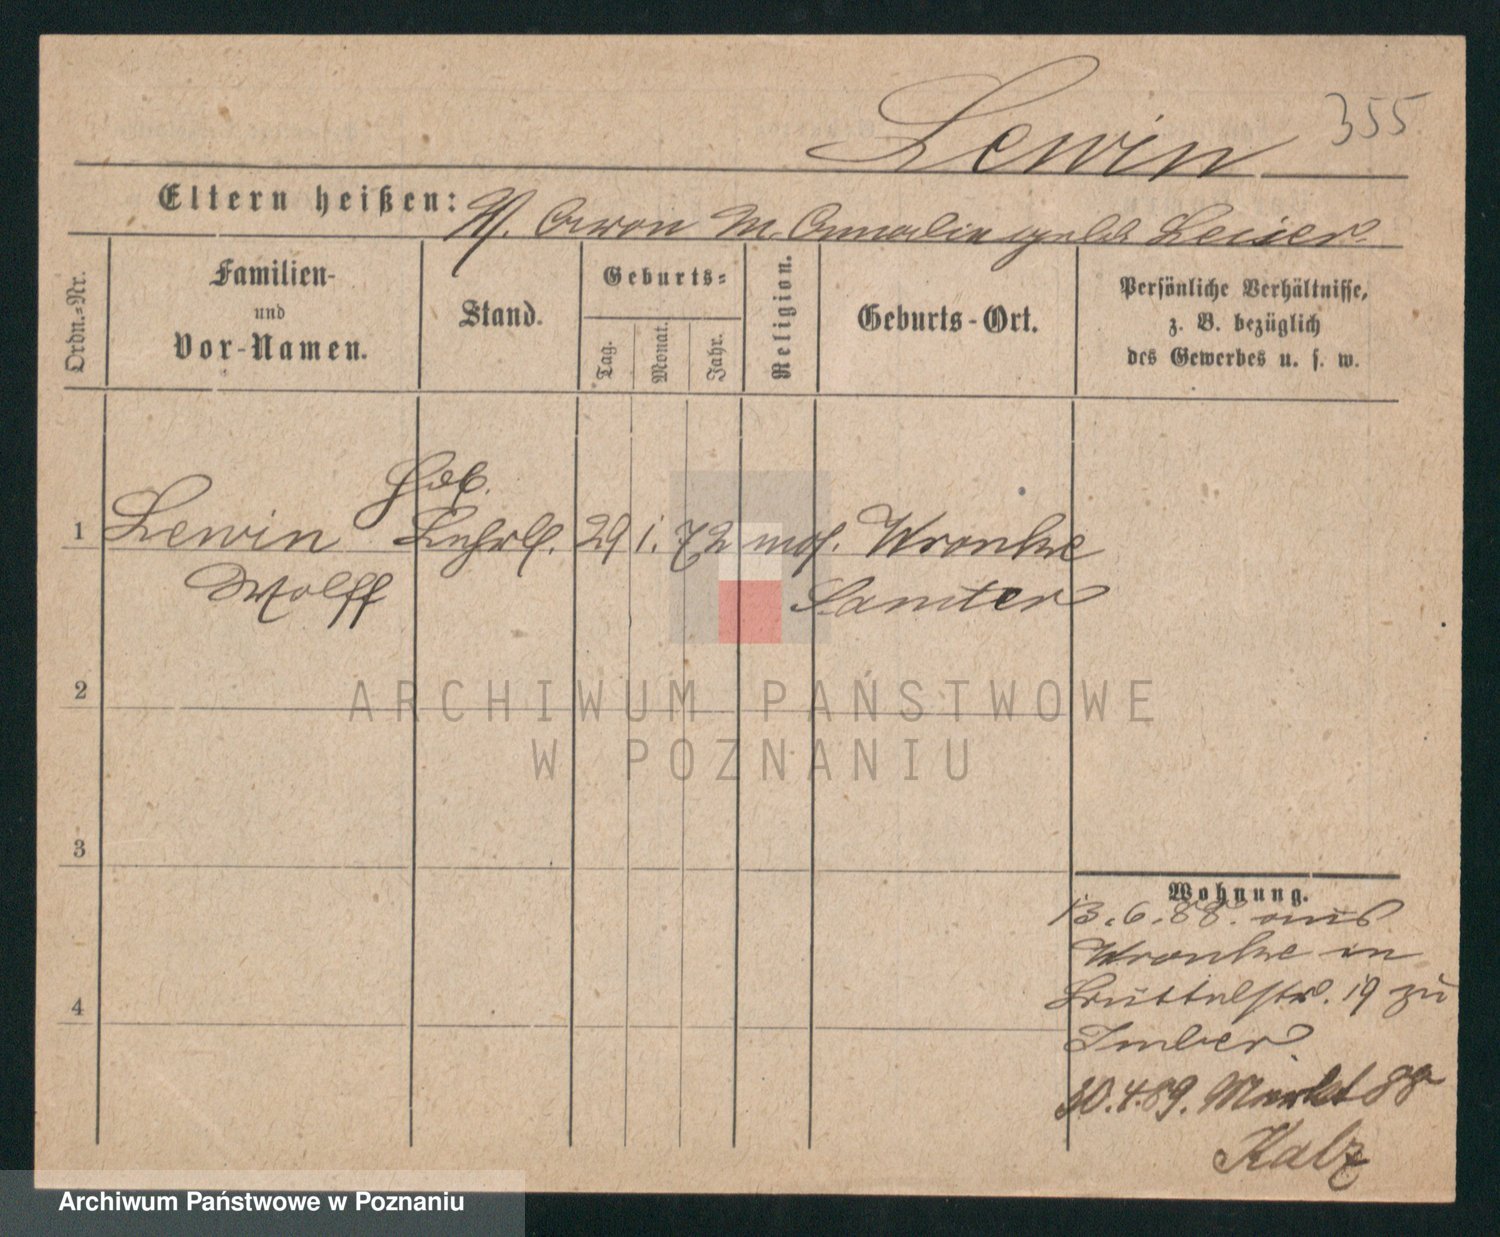 Lewin 355
Eltern heißen: V. Aron M. Amalie gebh Leiser
Ordn.-Nr.
Familien-
und
Vor-Namen.
Stand.
Geburts-
Tag.
Monat.
Jahr.
Religion.
Geburts-Ort.
Persönliche Verhältnisse,
z. B. bezüglich
des Gewerbes u. s. w.
1 Lewin Lehrl. 29 1. 72 mos. Wronke
Wolff Samter
2
3
4
Wohnung.
13.6.88. aus
Wronke in
19 zu
Imber
30.4.89. Markt 88
Katz
ARCHIWUM PAŃSTWOWE
W POZNANIU
Archiwum Państwowe w Poznaniu